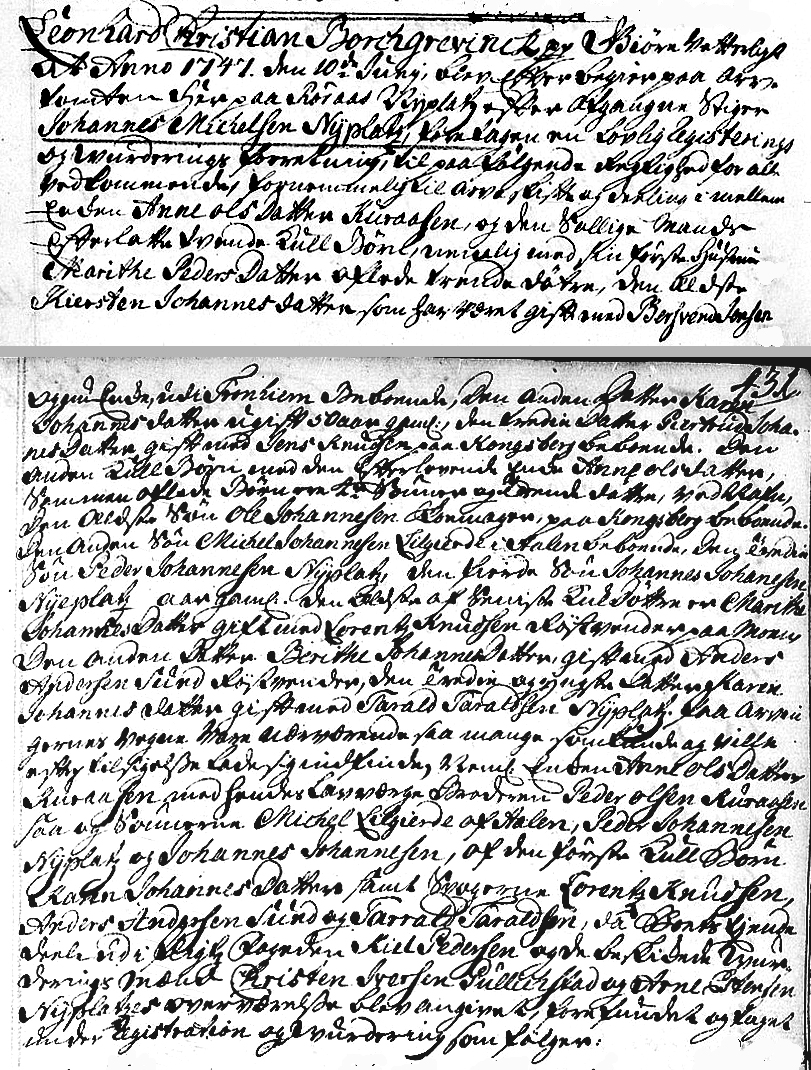 Leonhard Christian Borchgrevinch og Giøre Vetterligt
at Anno 1747. den 10de Junij, blev efter begier paa Arve
tomten her paa Røraas Nyplatz efter afgangne Stiger
Johannes Michelsen Nyplatz, foretagen en lovlig Registerings
og Wurderings forretning, til paafølgende Rigtighed for alle
vedkommende, fornemmelig til arveskifte og deeling imellem
Enken Anne Ols Datter Kuraasen, og den Sallige Mands
Efterlatte tvende Kull Børn, nemlig med sin første Hustrue
Marithe Peders Datter aflede trende døtre, den Eldste
Kiersten Johannes datter som har været gift med Bersvend Jensen
431
og nu Enke, udi Tronhiem Beboende, Den anden Datter Karen
Johannes datter ugift 50 aar gaml., den tredie Datter Giertrud Joha-
nes Datter gift med Jens Knudsen paa Kongsberg beboende. Den
anden Kull Børn med den Efterlevende Enke Anne Ols datter,
Sammen aflede Børn ere 4re Sønner og trende døtter, ved Nafn,
Den Eldste Søn Ole Johannesen paa Kongsberg beboende.
Den anden Søn Michel Johannesen Lilgierde i Aalen beboende, Den Tredie
Søn Peder Johannesen Nyplatz, den fierde Søn Johannes Johanesen
Nyeplatz aar gaml. Den Eldste af Seniste Kul døttre er Marithe
Johannes Datter gift med Lorentz Knudsen Røstvender paa
Den anden Datter Berithe Johannes Datter, gift med Anders
Andersen Sund Røstvender, den Tredie og yngste Datter Karen
Johannes datter gift med Tarald Taraldsen Nyplatz. paa Arvin
gernes vegne vare nærværende saa mange som kunde og ville
efter tilsigelse lade sig indfinde, Neml. Enken Anne Ols Datter
Kuraasen med hendes Lavværge Broderen Peder Olsen Kuraasen
saa og Sønnerne Michel Lilgierde af Aalen, Peder Johannesen
Nyplatz og Johannes Johannesen, af den første Kull Børn
Karen Johannes Datter samt Svogerne Lorentz Knudsen,
Anders Andersen Sund og Tarrald Taraldsen, da Boets Eyende
deele udi Fogden Kiel Pedersen og de beskikede Wur-
derings Mænd Christen Iversen Gullichstad og Arne Estensen
Nyplatzes overværelse blev angivet, forefundet og taget
under Registration og Wurdering som følger: